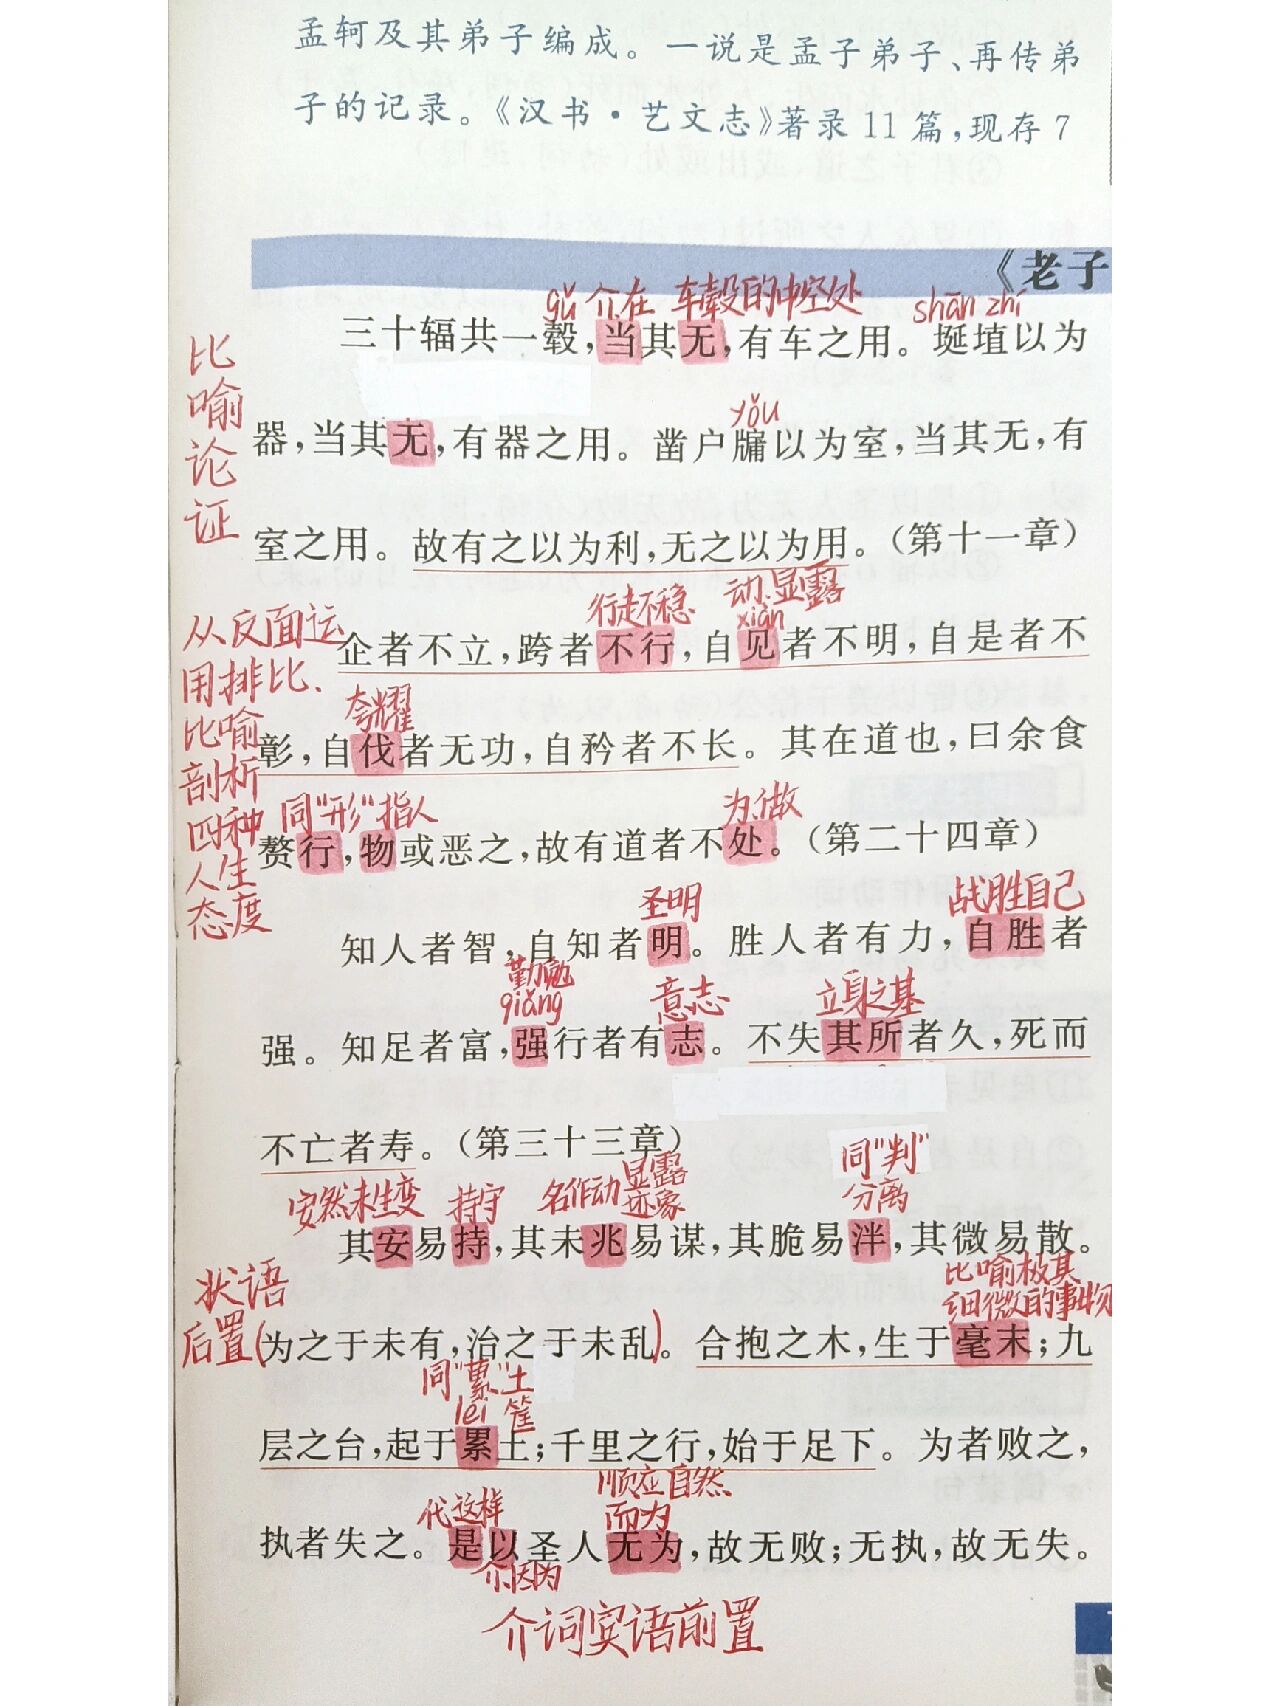 孟轲及其弟子编成。一说是孟子弟子、再传弟
子的记录。《汉书·艺文志》著录11篇,现存7
《老子
gǔ 介.在 车毂的中空处 shān zhí
三十辐共一毂,当其无,有车之用。埏埴以为
比喻论证
yǒu
器,当其无,有器之用。凿户牖以为室,当其无,有
室之用。故有之以为利,无之以为用。(第十一章)
行走不稳 动.显露 xiàn
从反面运用排比、比喻剖析四种人生态度
企者不立,跨者不行,自见者不明,自是者不
夸耀
彰,自伐者无功,自矜者不长。其在道也,曰余食
同“形” 指人 为.做
赘行,物或恶之,故有道者不处。(第二十四章)
圣明 战胜自己
知人者智,自知者明。胜人者有力,自胜者
勤勉 qiǎng 意志 立身之基
强。知足者富,强行者有志。不失其所者久,死而
不亡者寿。(第三十三章)
安然未生变 持守 名作动 显露迹象 同“判” 分离
其安易持,其未兆易谋,其脆易泮,其微易散。
状语后置
比喻极其细微的事物
(为之于未有,治之于未乱)。合抱之木,生于毫末;九
同“蔂”土筐 léi
层之台,起于累土;千里之行,始于足下。为者败之,
代.这样 顺应自然而为
执者失之。是以圣人无为,故无败;无执,故无失。
介.因为
介词宾语前置